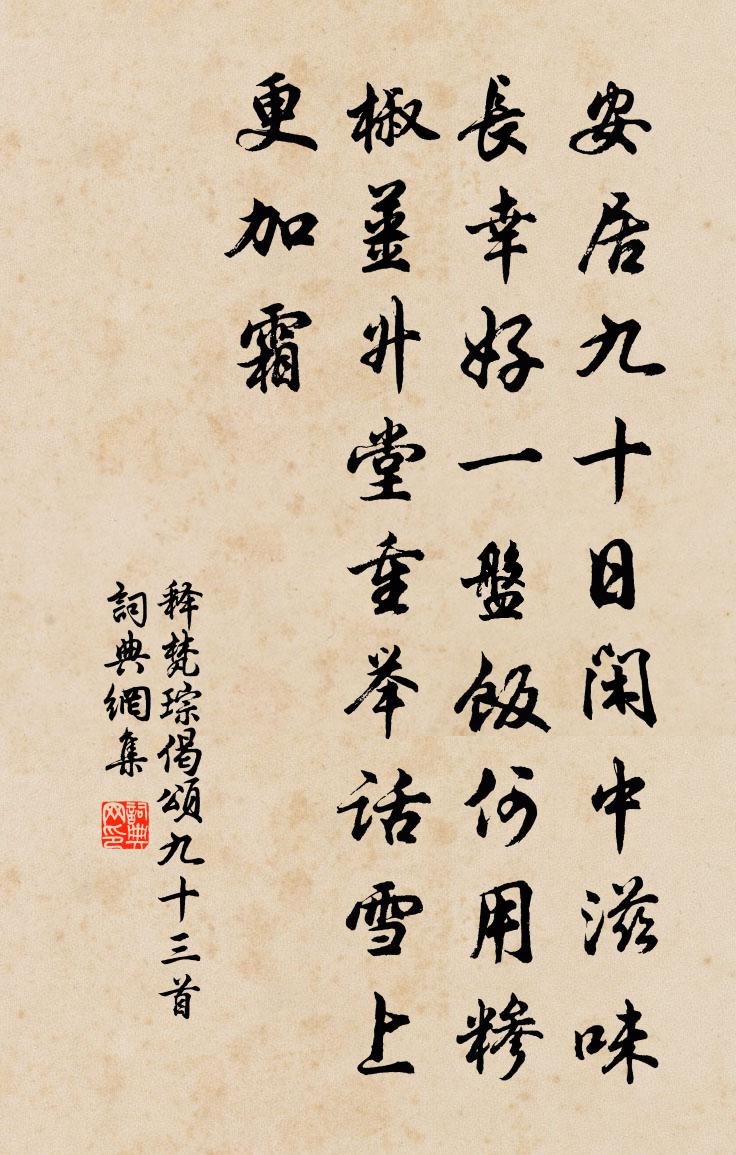 安居九十日閑中滋味
長幸好一盤飯何用糝
椒薑升堂重举話雪上
更加霜
释梵琮偈頌九十三首
詞典網集
詞典网印